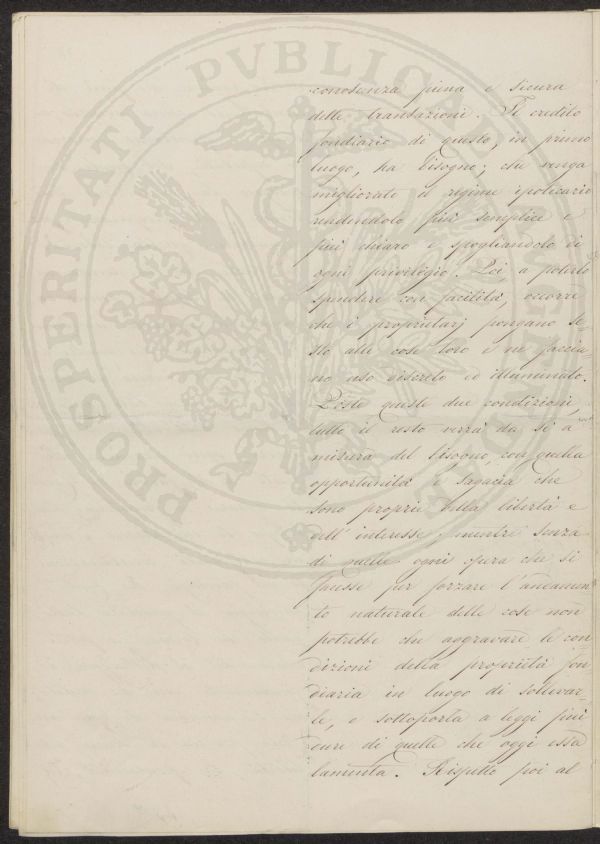 conoscenza piena e sicura
delle transazioni. Il credito
fondiario di questo, in primo
luogo, ha bisogno; che venga
migliorato il regime ipotecario
rendendolo più semplice e
più chiaro e spogliandolo di
ogni privilegio. Poi a poterlo
spandere con facilità, occorre
che i proprietarj pongano se-
sto alle cose loro e ne faccia-
no uso discreto ed illuminato.
Poste queste due condizioni,
tutto il resto verrà da sè a
misura del bisogno, con quella
opportunità e sagacia che
sono proprie della libertà e
dell'interesse; mentre senza
di quelle ogni opera che si
facesse per forzare l'andamen
to naturale delle cose non
potrebbe che aggravare le con
dizioni della proprietà fon
diaria in luogo di sollevar-
le, e sottoporla a leggi più
dure di quelle che oggi essa
lamenta. Rispetto poi al
PROSPERITATI PVBLICAE